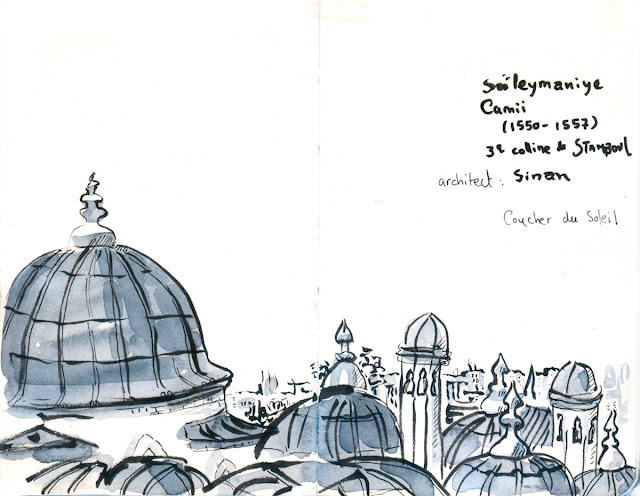 Süleymaniye
Camii
(1550-1557)
3e colline de STAMBOUL
architect : Sinan
Coucher du Soleil